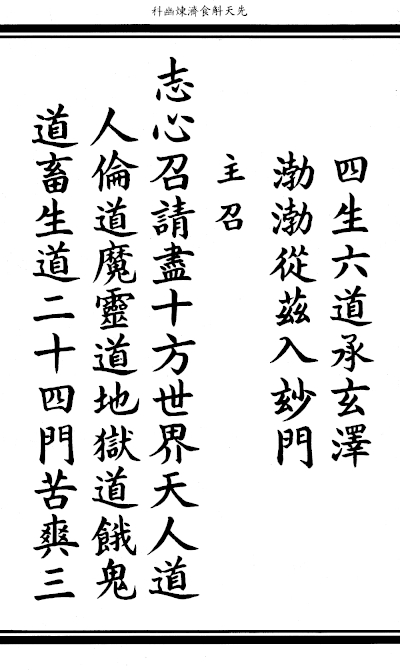 先天斛食濟煉幽科
四生六道承玄澤
渤渤從茲入玅門
主召
志心召請盡十方世界天人道
人倫道魔靈道地獄道餓鬼
道畜生道二十四門苦爽三